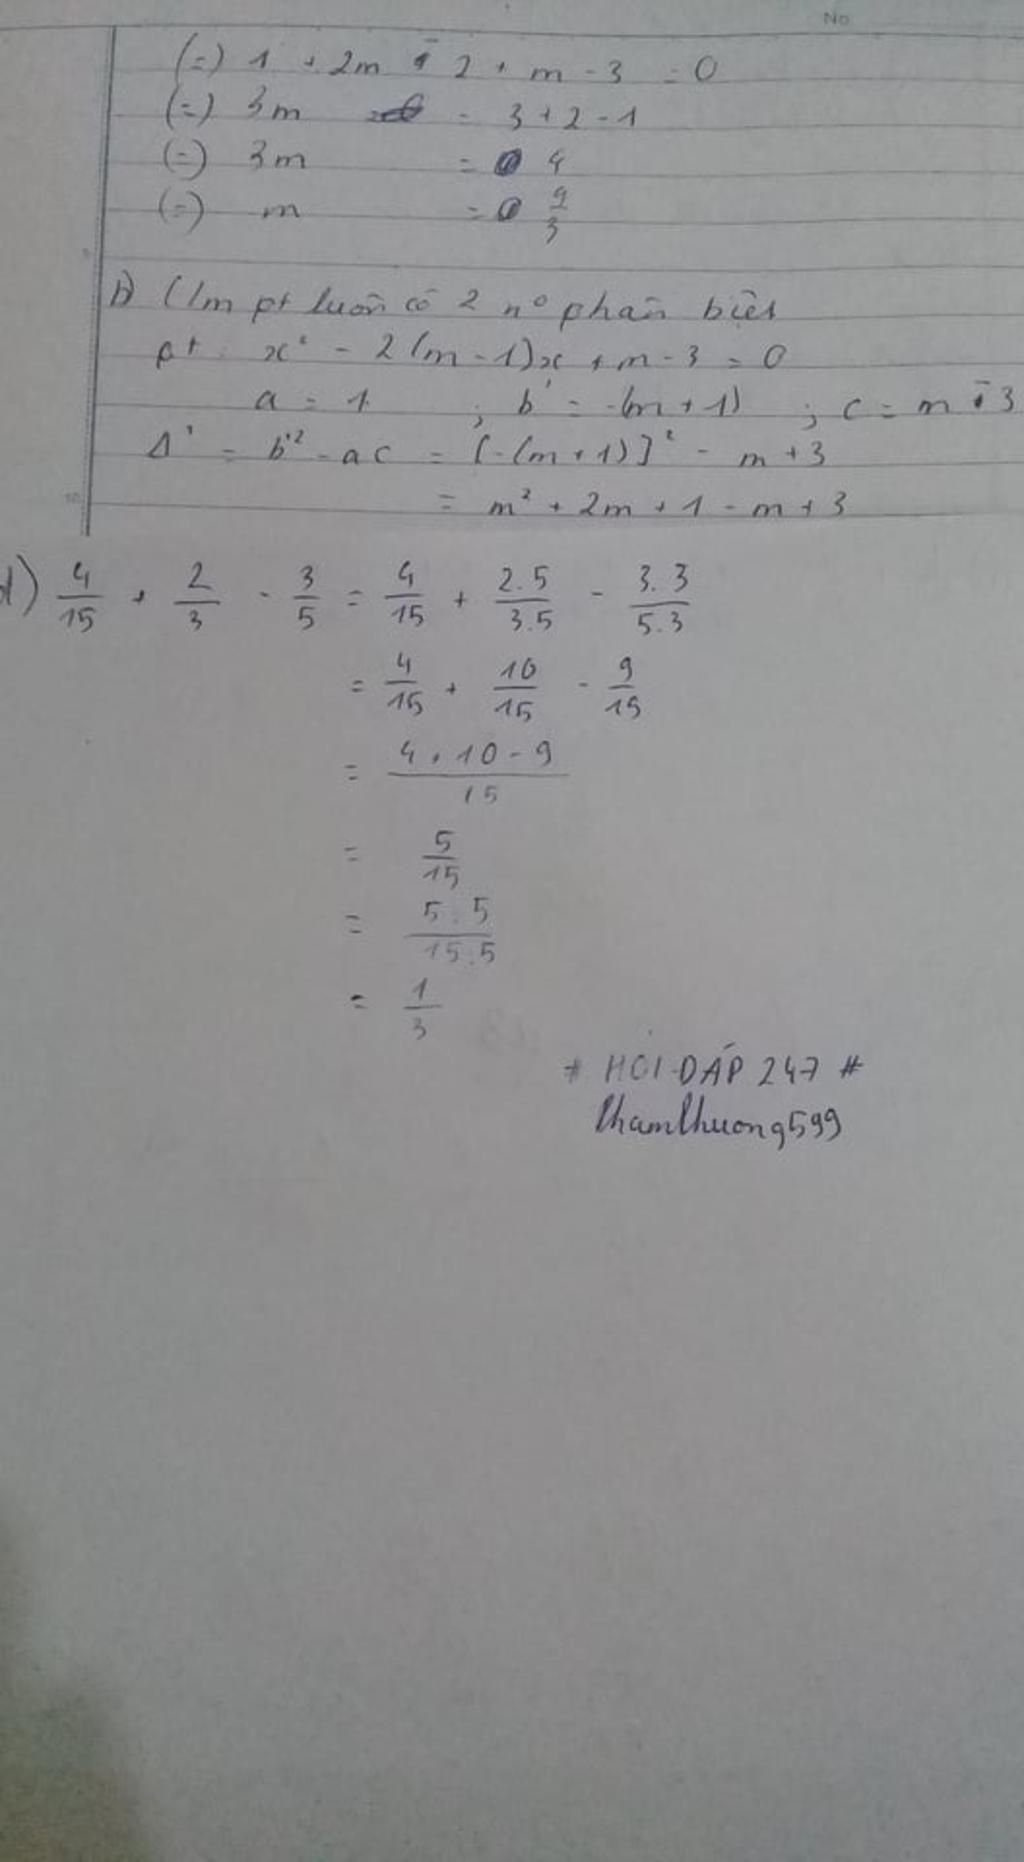 No
(=) 1 + 2m - 2 + m - 3 = 0
(=) 3m = 3 + 2 - 1
(=) 3m = 4
(=) m = 4/3
b) C/m pt luôn có 2 n° phân biệt
pt: x² - 2(m - 1)x + m - 3 = 0
a = 1 ; b' = -(m + 1) ; c = m - 3
Δ' = b'² - ac = [-(m + 1)]² - m + 3
= m² + 2m + 1 - m + 3
d) 4/15 + 2/3 - 3/5 = 4/15 + 2.5/3.5 - 3.3/5.3
= 4/15 + 10/15 - 9/15
= 4 + 10 - 9/15
= 5/15
= 5:5/15:5
= 1/3
# HỎI ĐÁP 247 #